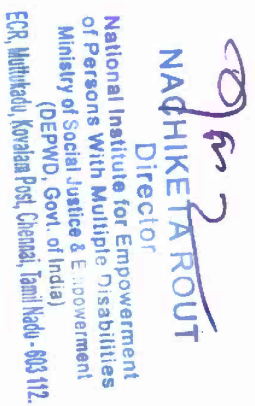 NACHIKETA ROUT
Director
National Institute for Empowerment
of Persons With Multiple Disabilities
Ministry of Social Justice & Empowerment
(DEPWD, Govt. of India)
ECR, Muttukadu, Kovalam Post, Chennai, Tamil Nadu - 603 112.